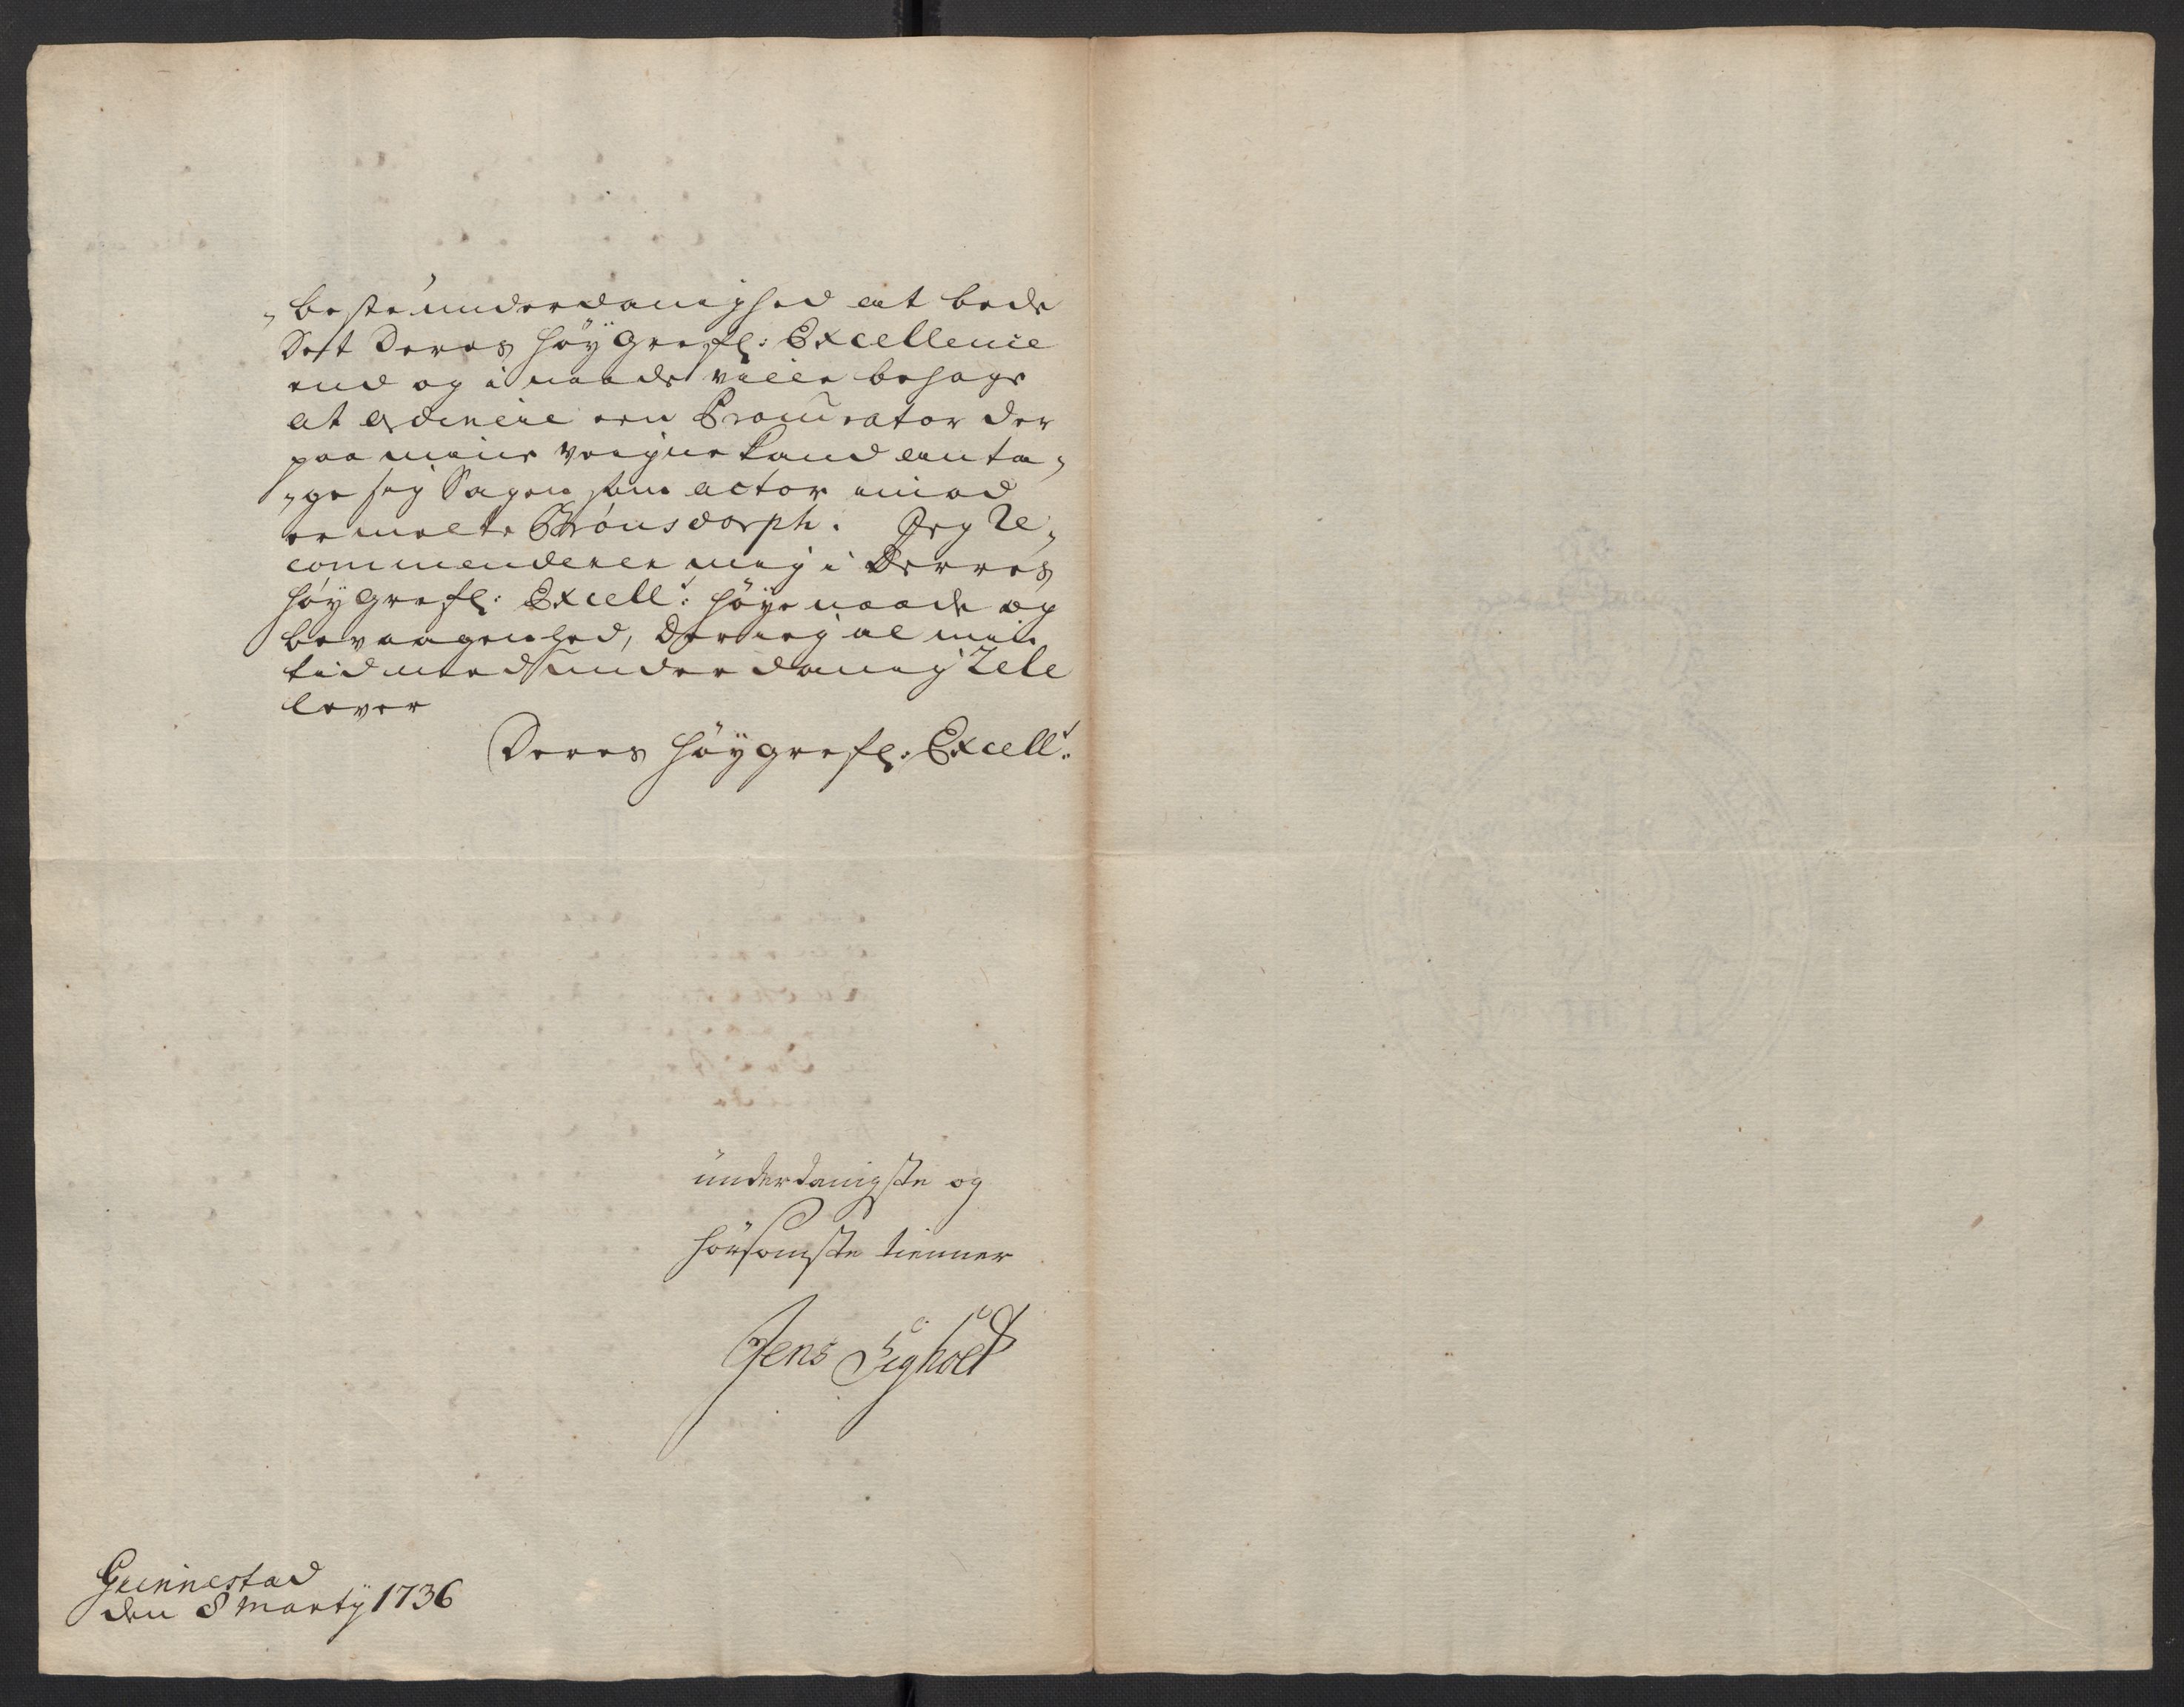 „beste underdanighed at bede
Det Deres höÿ Grefl: Excellence
end og i naade ville behage
at ordinere een Procurator der
paa mine veigne kand anta„
„ge sig Sagen som actor imod
ermelte Brönsdorph. Jeg Re„
commenderer mig i Deres
höÿ Grefl: Excell:̸ höye naade og
bevaagenhed, der ieg al min
tid med underdanig Zele
lever
Deres höÿ grefl: Excell:
underdanigste og
hörsomste tienner
Jens Sigholt
Gunnestad
den 8 Martÿ 1736